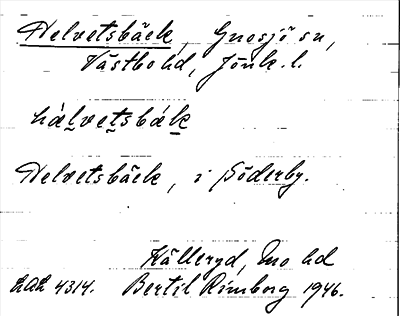 Helvetsbäck, Gnosjö sn,
Västbo hd, Jönk. l.
hälvetsbäk
Helvetsbäck, i Söderby.
Källeryd, Mo hd
LAL 4314. Bertil Rimborg 1946.